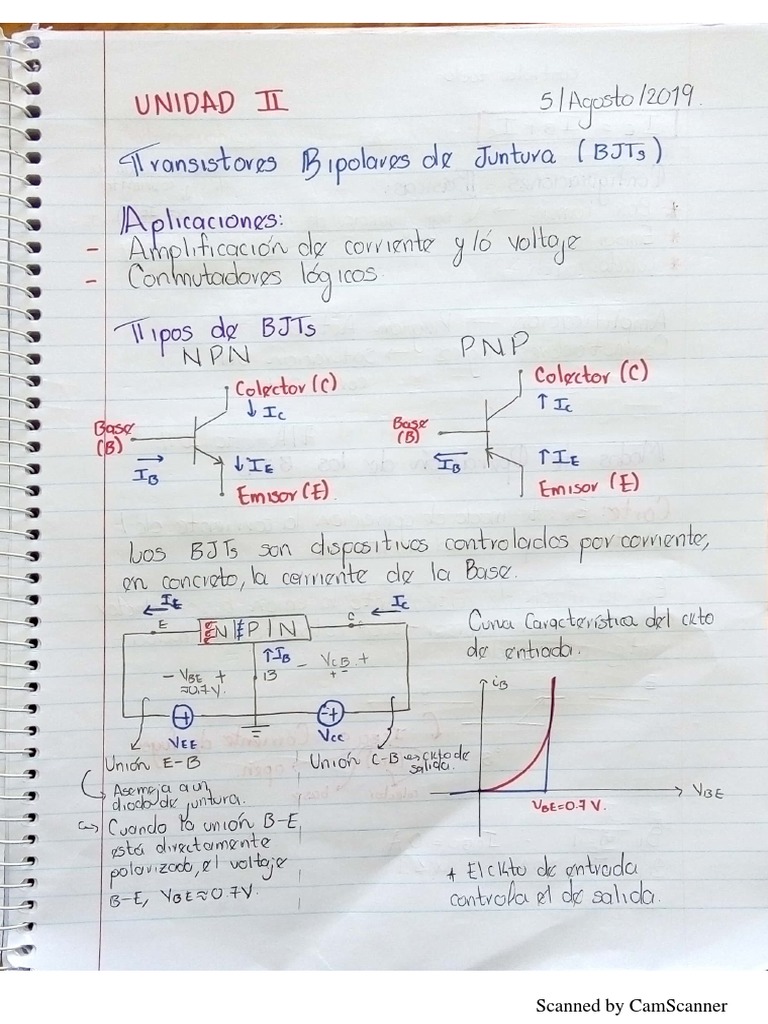 UNIDAD II
5/Agosto/2019.
Transistores Bipolares de Juntura (BJTs)
Aplicaciones:
- Amplificación de corriente y/ó voltaje
- Conmutadores lógicos.
Tipos de BJTs
NPN
PNP
Colector (C)
↓ Ic
Base
(B)
→
IB
↓ IE
Emisor (E)
Colector (C)
↑ Ic
Base
(B)
←
IB
↑ IE
Emisor (E)
Los BJTs son dispositivos controlados por corriente,
en concreto, la corriente de la Base.
← IE
← Ic
E
N P N
C
↑ IB
B
- VBE +
≈0.7V.
- VCB +
+ -
VEE
Vcc
Unión E-B
Unión C-B ↔ ckto de
salida.
Asemeja a un
diodo de juntura.
↪ Cuando la unión B-E
está directamente
polarizada, el voltaje
B-E, VBE ≈ 0.7V.
Curva Característica del ckto
de entrada.
iB
VBE
VBE=0.7 V.
* El ckto de entrada
controla el de salida.
Scanned by CamScanner